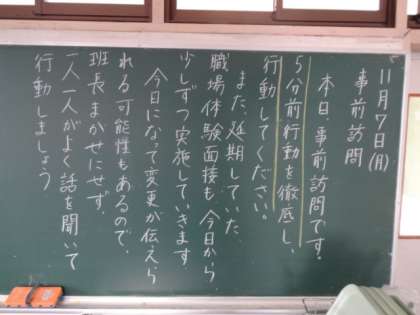 11月7日(月)
事前訪問
本日、事前訪問です。
5分前行動を徹底し、
行動してください。
また、延期していた、
職場体験面接も、今日から、
少しずつ実施していきます。
今日になって変更が伝えら
れる可能性もあるので、
班長まかせにせず、
一人一人がよく話を聞いて
行動しましょう